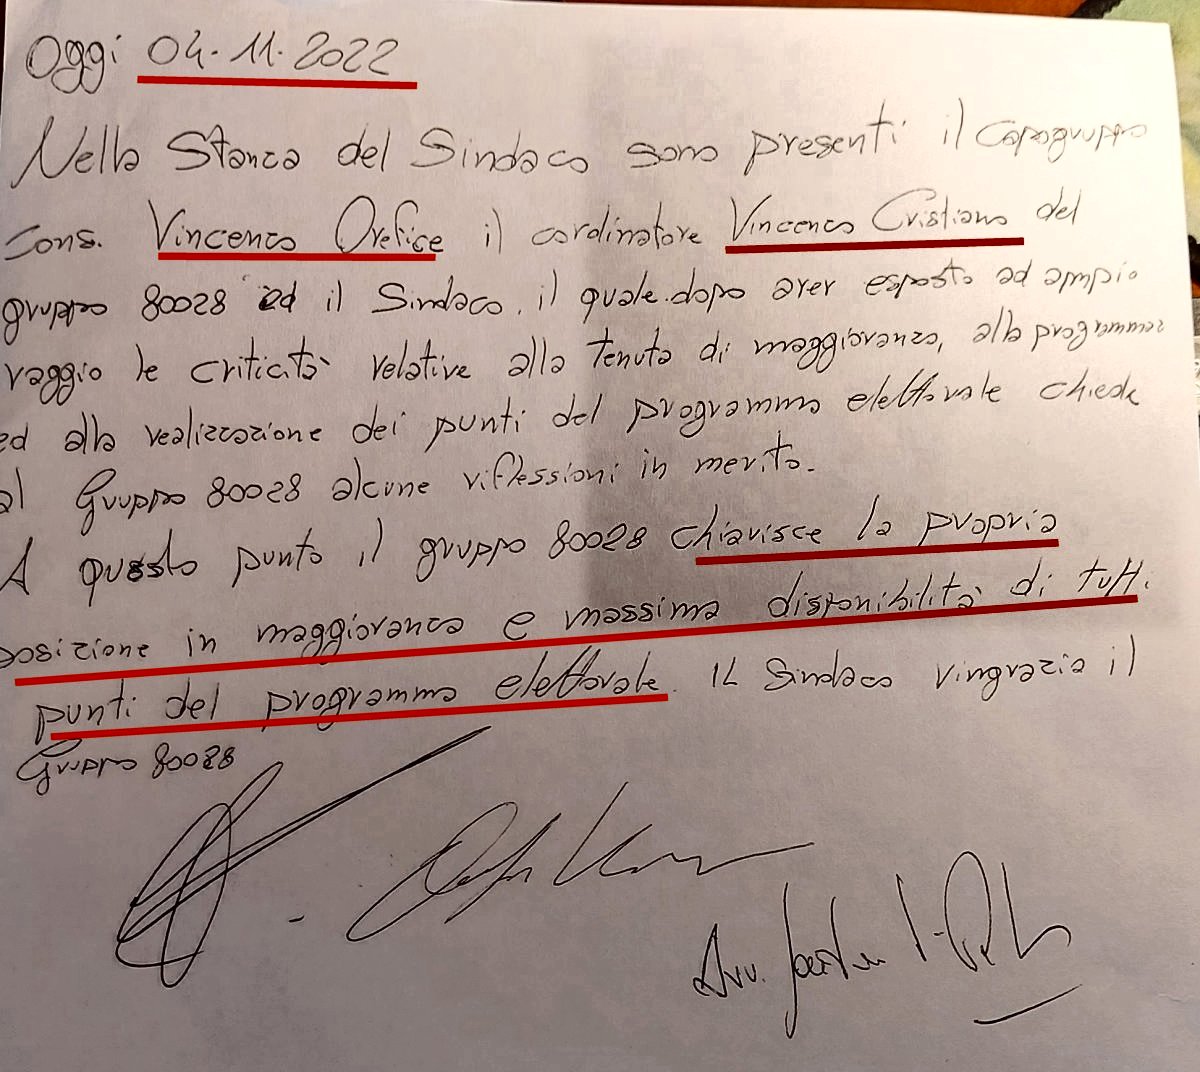 Oggi 04.11.2022
Nella Stanza del Sindaco sono presenti il capogruppo
Cons. Vincenzo Orefice il cordinatore Vincenzo Cristiano del
gruppo 80028 ed il Sindaco, il quale dopo aver esposto ad ampio
raggio le criticità relative alla tenuta di maggioranza, alla programmaz
ed alla realizzazione dei punti del programma elettorale chiede
al Gruppo 80028 alcune riflessioni in merito.
A questo punto il gruppo 80028 chiarisce la propria
posizione in maggioranza e massima disponibilità di tutti
punti del programma elettorale. IL Sindaco ringrazia il
Gruppo 80028
Avv.